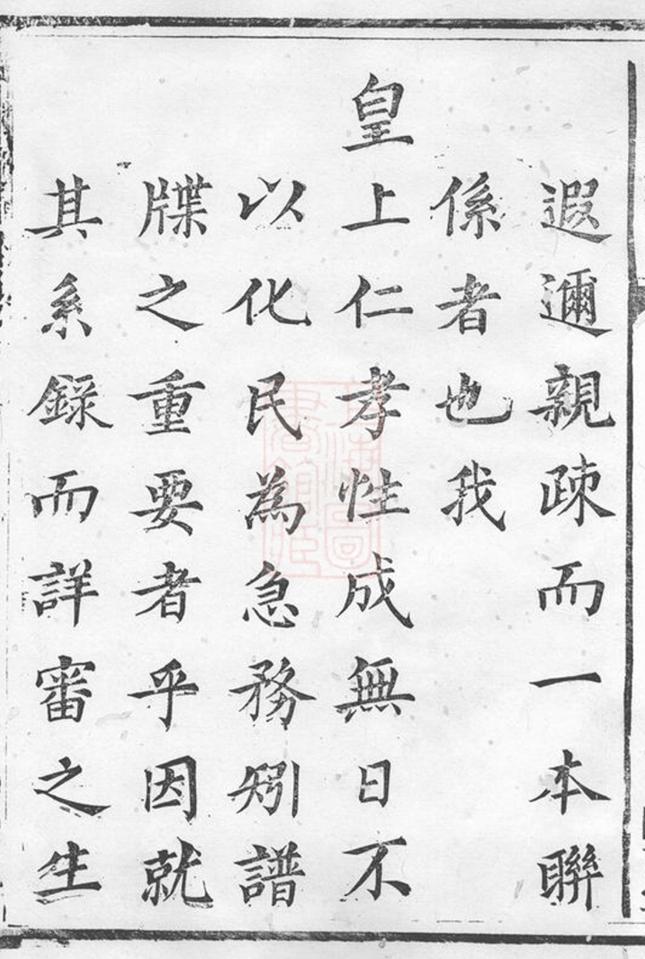 遐邇親疎而一本聯
係者也我
皇上仁孝性成無日不
以化民為急務矧譜
牒之重要者乎因就
其系錄而詳審之生